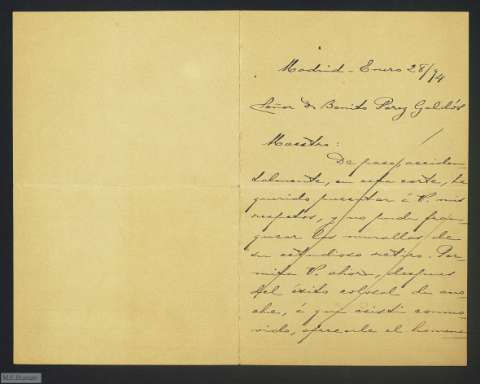 Madrid - Enero 28/94
Señor Dn Benito Perez Galdós
Maestro:
De paso, acciden-
talmente, en esta corte, he
querido presentar á V. mis
respetos, y no pude fran-
quear las murallas de
su estudioso retiro. Per-
mita V. ahora, despues
del éxito colosal de ano-
che, á que asistí conmo-
vido, ofrezca el homena-